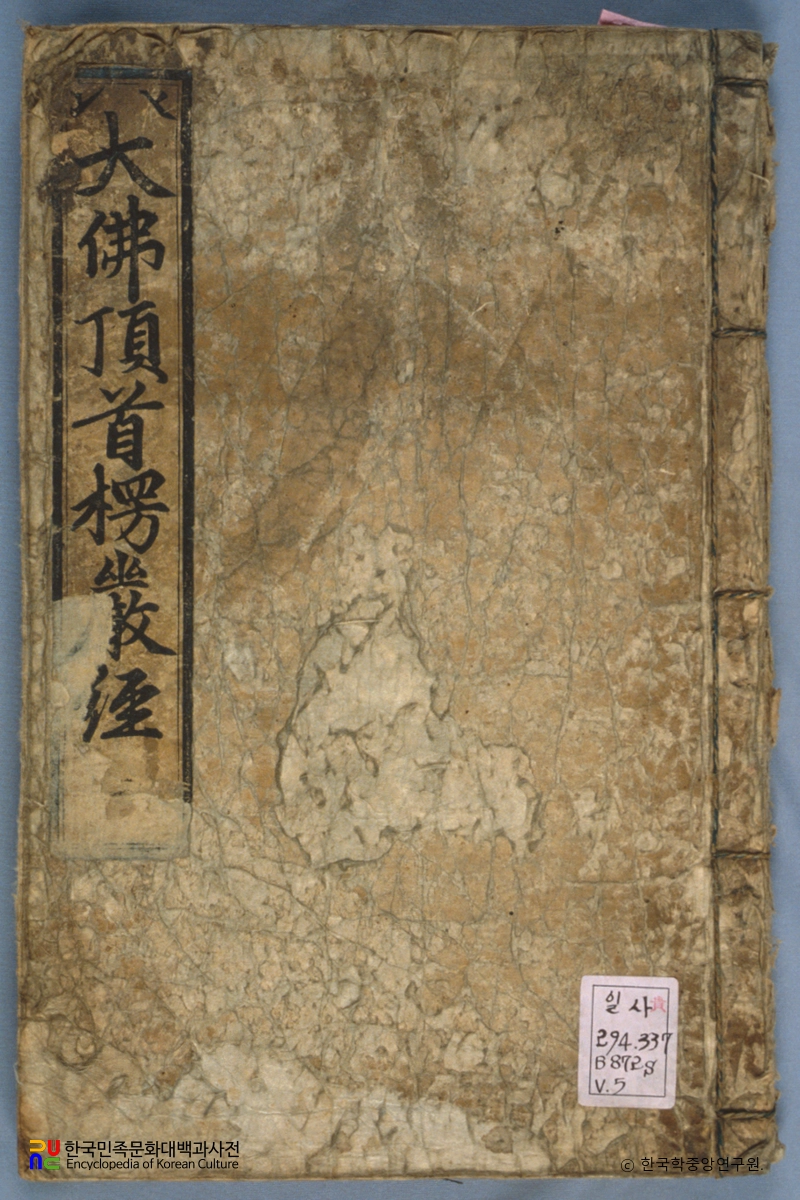 大佛頂首楞嚴經
일사 貴
294.337
B872s
V.5
한국민족문화대백과사전
Encyclopedia of Korean Culture
© 한국학중앙연구원.